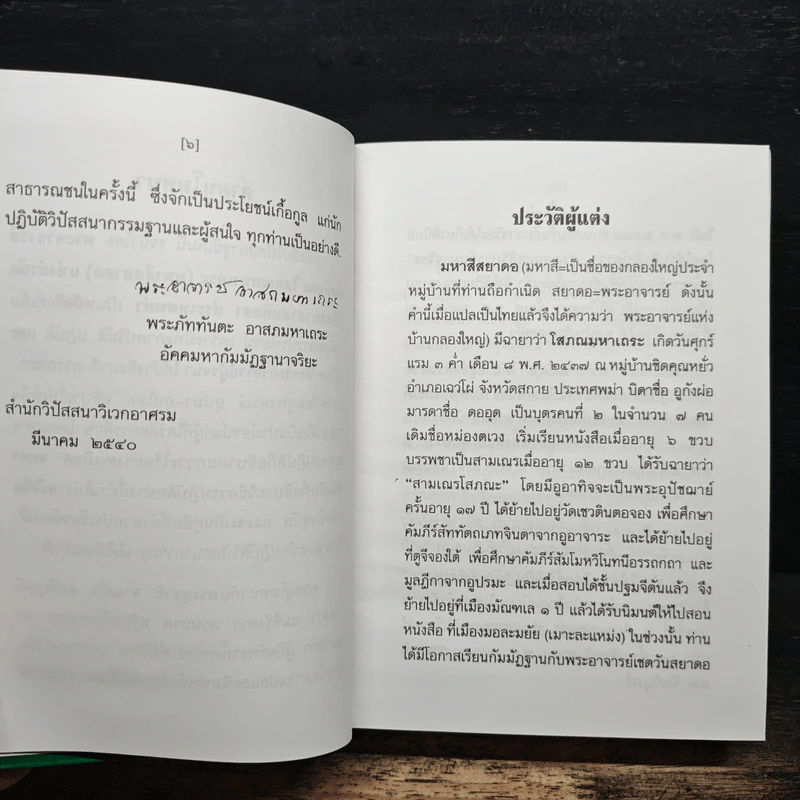 [๖]
สาธารณชนในครั้งนี้ ซึ่งจักเป็นประโยชน์เกื้อกูล แก่นัก
ปฏิบัติวิปัสสนากรรมฐานและผู้สนใจ ทุกท่านเป็นอย่างดี.
พระภัททันตะ อาสภมหาเถระ
อัคคมหากัมมัฏฐานาจริยะ
สำนักวิปัสสนาวิเวกอาศรม
มีนาคม ๒๕๔๐
ประวัติผู้แต่ง
มหาสีสยาดอ (มหาสี=เป็นชื่อของกลองใหญ่ประจำ
หมู่บ้านที่ท่านถือกำเนิด สยาดอ=พระอาจารย์ ดังนั้น
คำนี้เมื่อแปลเป็นไทยแล้วจึงได้ความว่า พระอาจารย์แห่ง
บ้านกลองใหญ่) มีฉายาว่า โสภณมหาเถระ เกิดวันศุกร์
แรม ๓ ค่ำ เดือน ๘ พ.ศ. ๒๔๓๗ ณ หมู่บ้านชิดคุณหยั่ว
อำเภอเฉว่โผ่ จังหวัดสกาย ประเทศพม่า บิดาชื่อ อูกังผ่อ
มารดาชื่อ ดออุด เป็นบุตรคนที่ ๒ ในจำนวน ๗ คน
เดิมชื่อหม่องตเวง เริ่มเรียนหนังสือเมื่ออายุ ๖ ขวบ
บรรพชาเป็นสามเณรเมื่ออายุ ๑๒ ขวบ ได้รับฉายาว่า
“สามเณรโสภณะ” โดยมีอูอาทิจจะเป็นพระอุปัชฌาย์
ครั้นอายุ ๑๗ ปี ได้ย้ายไปอยู่วัดเชวตินตอจอง เพื่อศึกษา
คัมภีร์สัททัตถเภทจินดาจากอูอาจาระ และได้ย้ายไปอยู่
ที่ตูจีจองใต้ เพื่อศึกษาคัมภีร์สัมโมหวิโนทนีอรรถกถา และ
มูลฎีกาจากอูปรมะ และเมื่อสอบได้ชั้นปฐมจีตันแล้ว จึง
ย้ายไปอยู่ที่เมืองมัณฑเล ๑ ปี แล้วได้รับนิมนต์ให้ไปสอน
หนังสือ ที่เมืองมอละมยัย (เมาะละแหม่ง) ในช่วงนั้น ท่าน
ได้มีโอกาสเรียนกัมมัฏฐานกับพระอาจารย์เชตวันสยาดอ